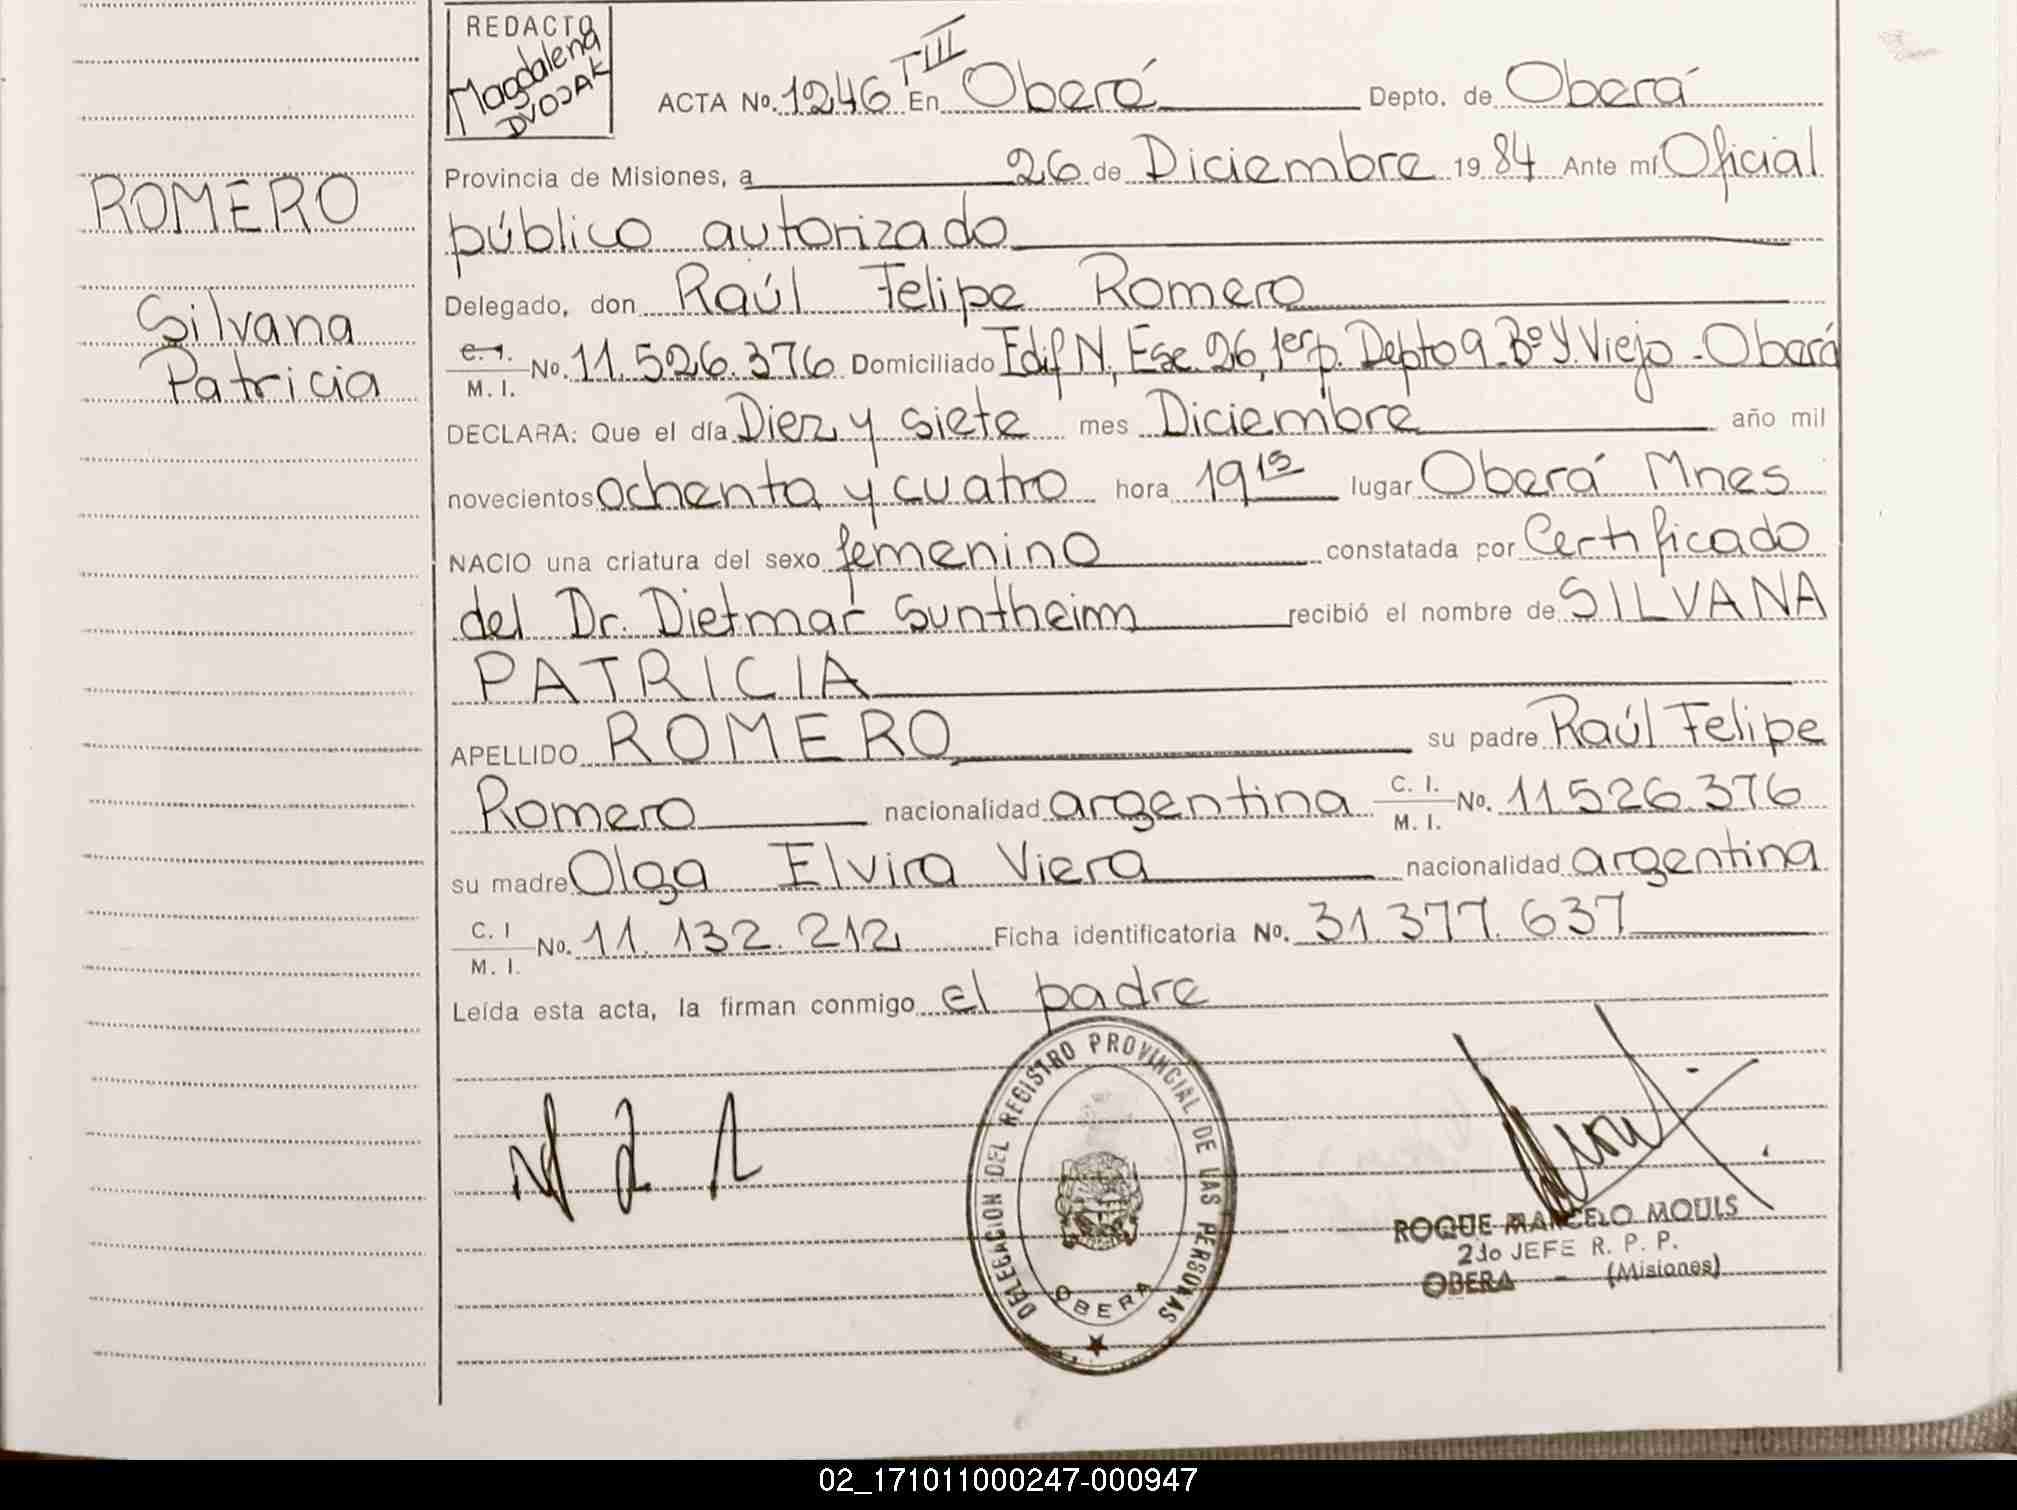 REDACTO
Magdalena
DVOJAK
ACTA No. 1246 TIII En Oberá Depto. de Oberá
Provincia de Misiones, a 26 de Diciembre 1984 Ante mí Oficial
público autorizado
ROMERO
Delegado, don Raúl Felipe Romero
Silvana
Patricia
C. I. / M. I. No. 11.526.376 Domiciliado Edif N, Esc 26, 1er p. Depto 9. Bº Y. Viejo - Oberá
DECLARA: Que el día Diez y siete mes Diciembre año mil
novecientos ochenta y cuatro hora 19 15 lugar Oberá Mnes
NACIO una criatura del sexo femenino constatada por Certificado
del Dr. Dietmar Suntheim recibió el nombre de SILVANA
PATRICIA
APELLIDO ROMERO su padre Raúl Felipe
Romero nacionalidad argentina C. I. / M. I. No. 11.526.376
su madre Olga Elvira Viera nacionalidad argentina
C. I / M. I. No. 11.132.212 Ficha identificatoria No. 31.377.637
Leída esta acta, la firman conmigo el padre
DELEGACION DEL REGISTRO PROVINCIAL DE LAS PERSONAS
OBERA
ROQUE MARCELO MOULS
2do JEFE R. P. P.
OBERA - (Misiones)
02_171011000247-000947